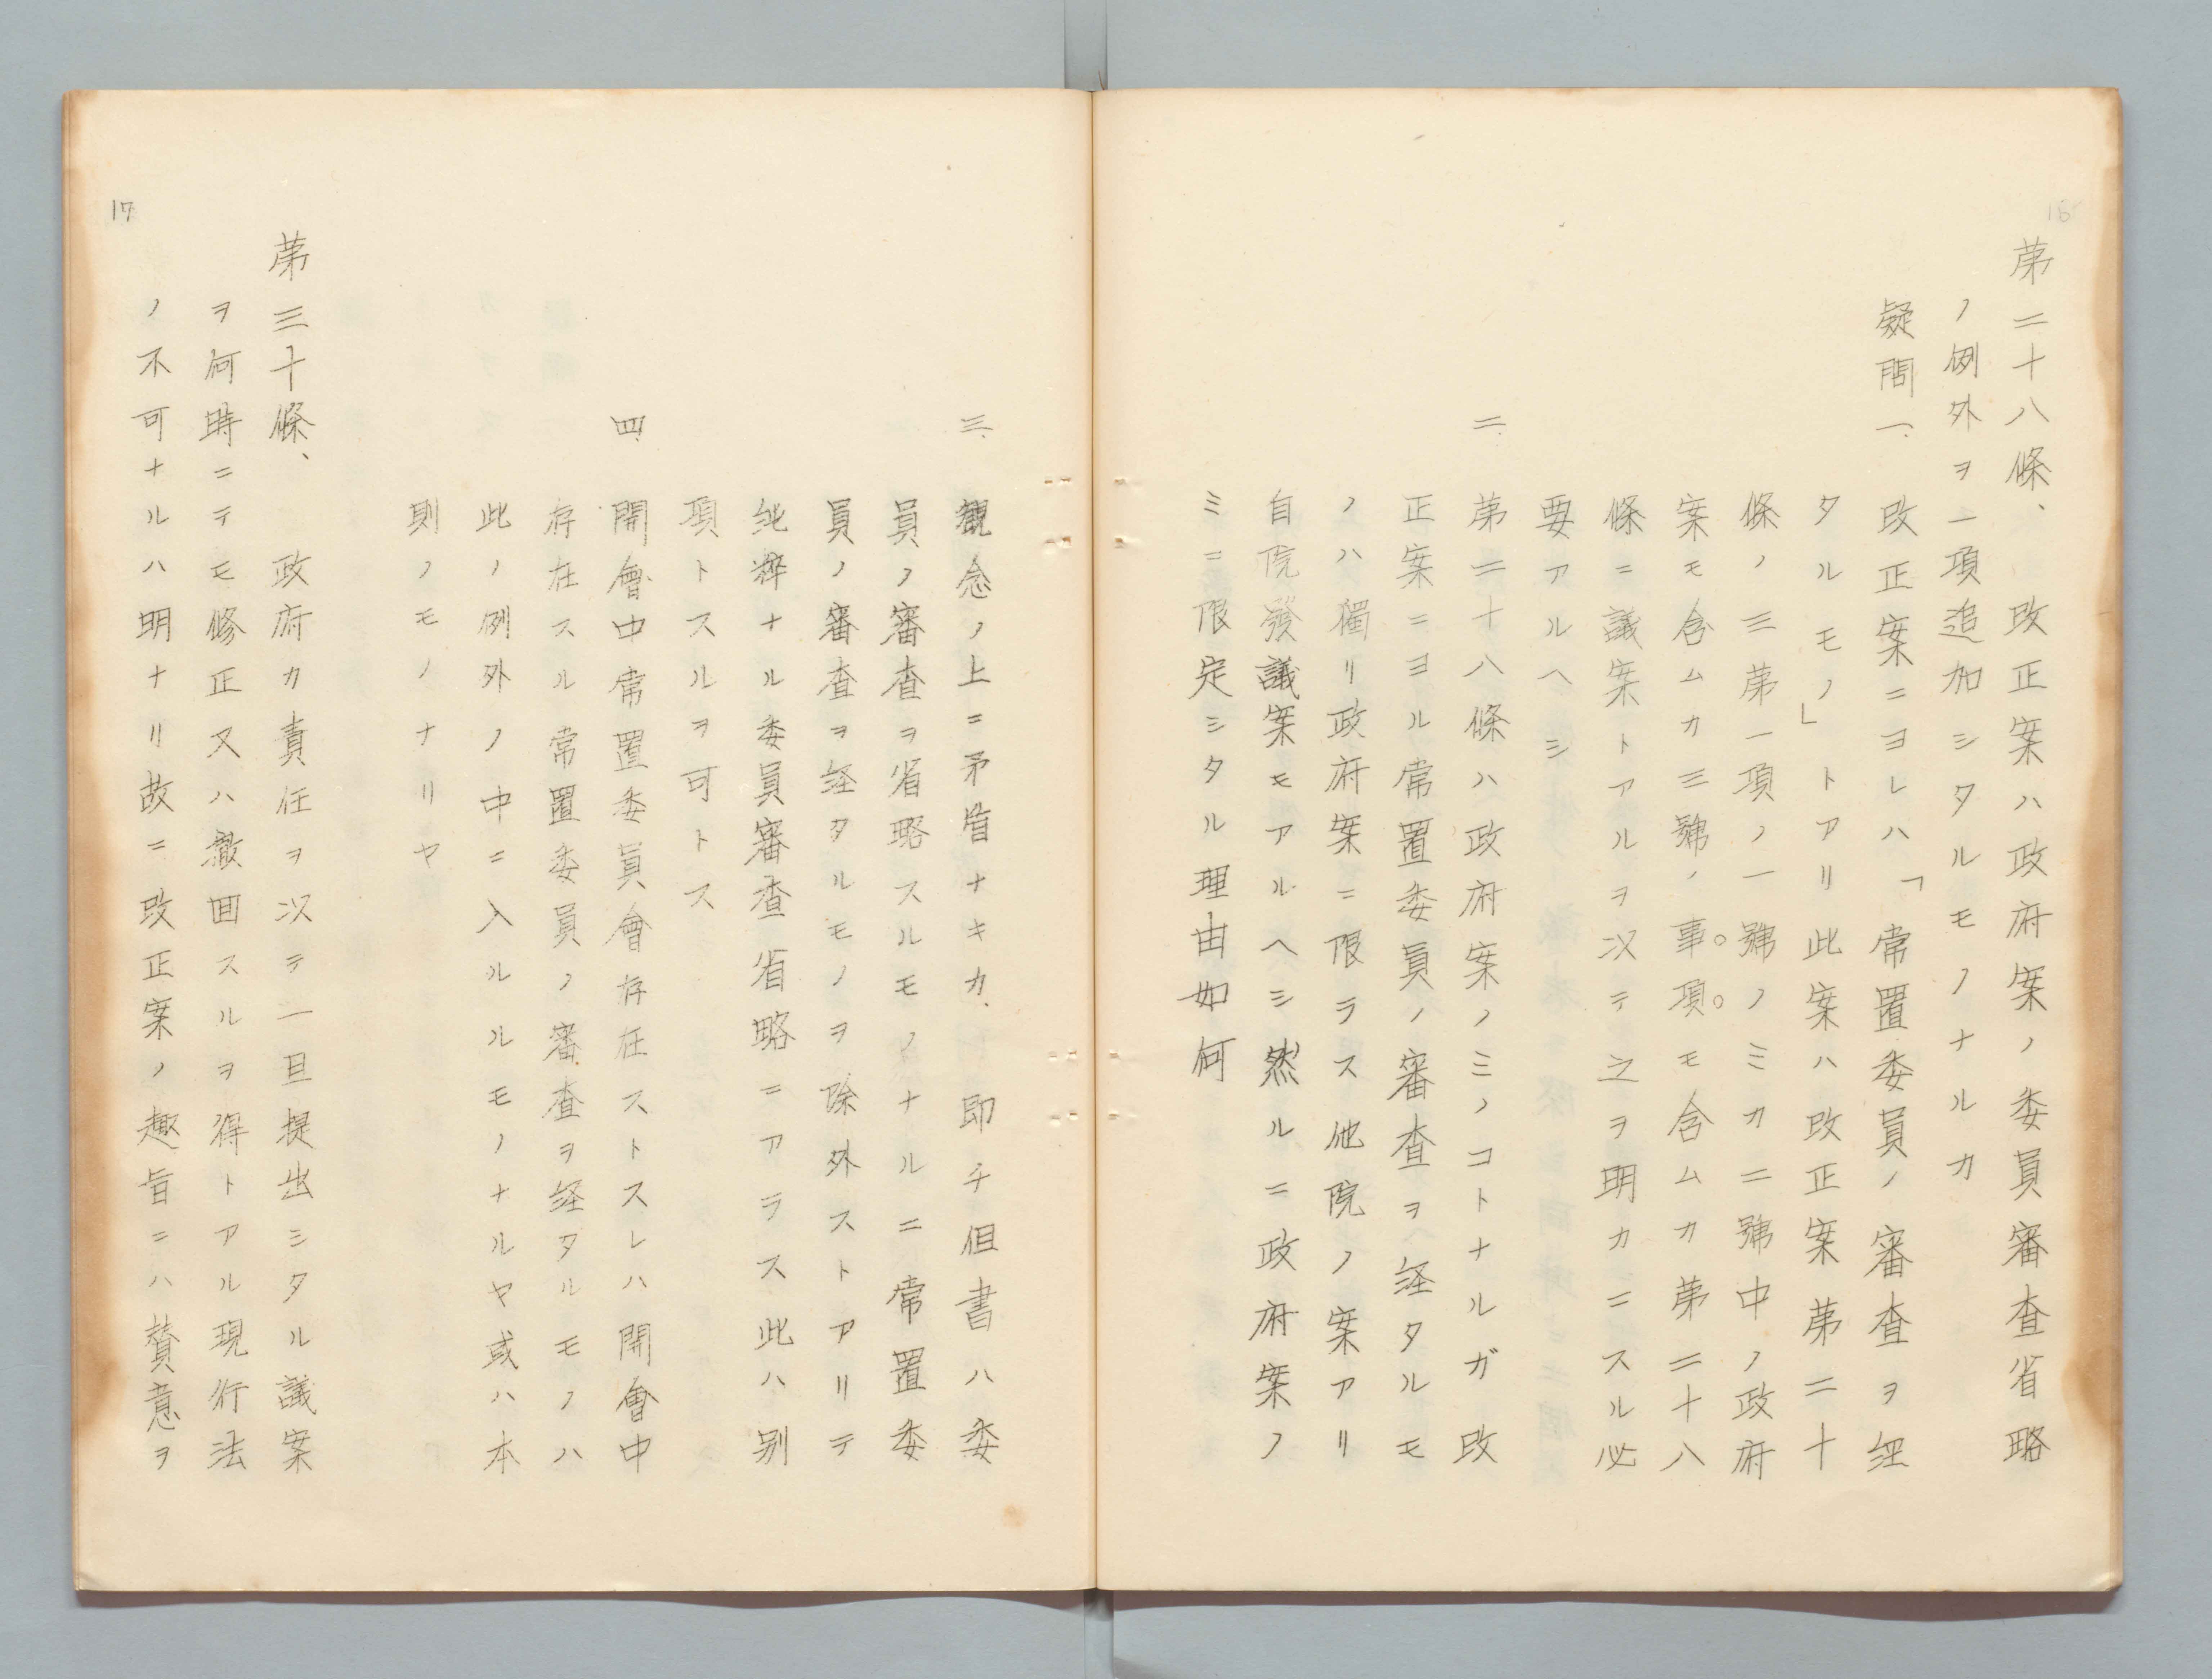 16
第二十八條、 改正案ハ政府案ノ委員審査省略
ノ例外ヲ一項追加シタルモノナルカ
疑問一、改正案ニヨレハ「常置委員ノ審査ヲ経
タルモノ」トアリ此案ハ改正案第二十
條ノ三第一項ノ一號ノミカ二號中ノ政府
案モ含ムカ三號ノ事項モ含ムカ第二十八
條ニ議案トアルヲ以テ之ヲ明カニスル必
要アルヘシ
二、第二十八條ハ政府案ノミノコトナルガ改
正案ニヨル常置委員ノ審査ヲ経タルモ
ノハ獨リ政府案ニ限ラス他院ノ案アリ
自院發議案モアルヘシ然ルニ政府案ノ
ミニ限定シタル理由如何
三、観念ノ上ニ矛盾ナキカ、即チ但書ハ委
員ノ審査ヲ省略スルモノナルニ常置委
員ノ審査ヲ経タルモノヲ除外ストアリテ
純粹ナル委員審査省略ニアラス此ハ別
項トスルヲ可トス
四、開會中常置委員會存在ストスレハ開會中
存在スル常置委員ノ審査ヲ経タルモノハ
此ノ例外ノ中ニ入ルルモノナルヤ或ハ本
則ノモノナリヤ
17
第三十條、 政府カ責任ヲ以テ一旦提出シタル議案
ヲ何時ニテモ修正又ハ撤回スルヲ得トアル現行法
ノ不可ナルハ明ナリ故ニ改正案ノ趣旨ニハ賛意ヲ